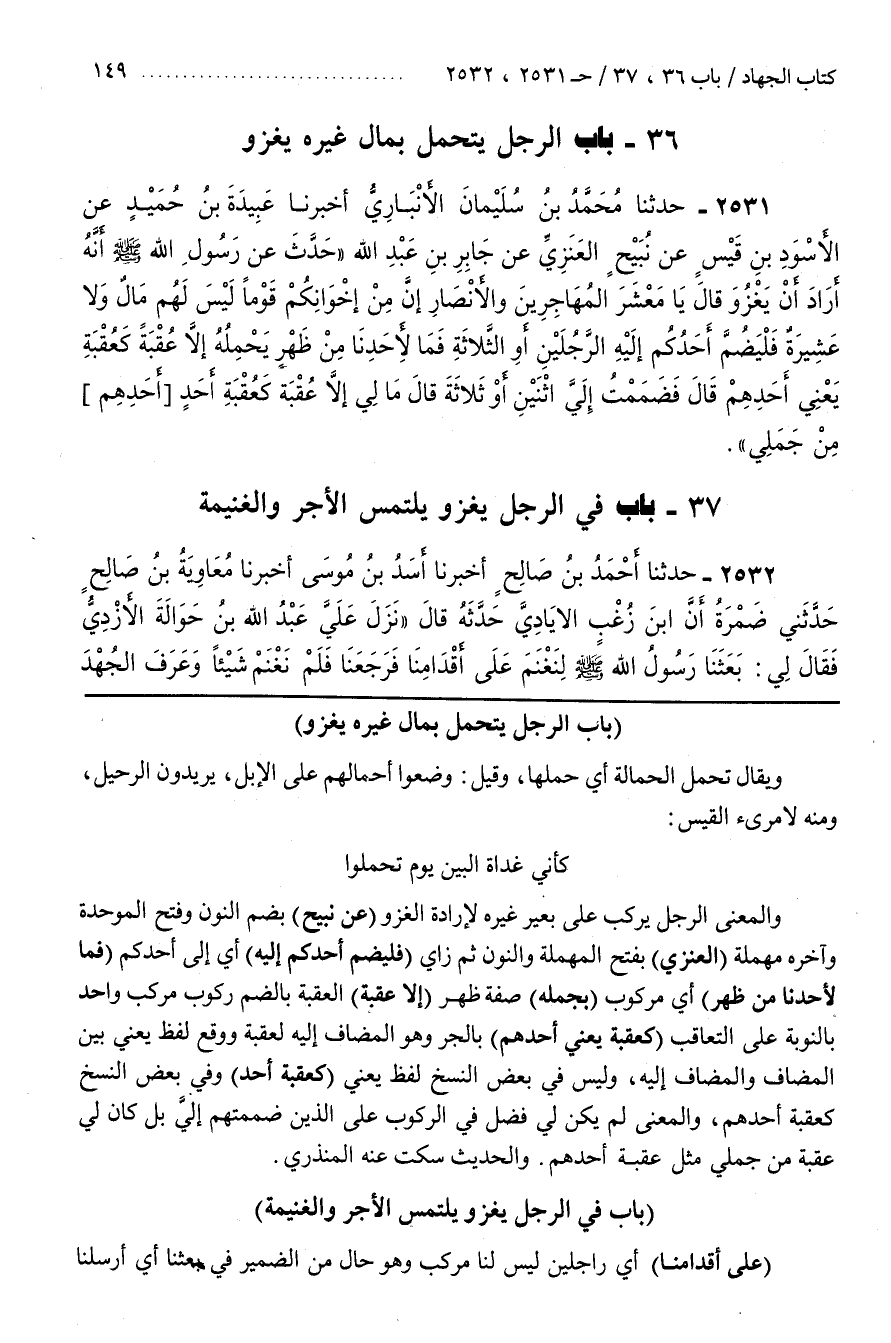 كتاب الجهاد / باب ٣٦ ، ٣٧ / حـ ٢٥٣١ ، ٢٥٣٢ ................................ ١٤٩
٣٦ ـ باب الرجل يتحمل بمال غيره يغزو
٢٥٣١ ـ حدثنا مُحَمَّدُ بنُ سُلَيْمانَ الأَنْبَارِيُّ أخبرنا عَبِيدَةَ بنُ حُمَيْدٍ عن
الأَسْوَدِ بنِ قَيْسٍ عن نُبَيْحٍ العَنَزِيِّ عن جَابِرِ بنِ عَبْدِ الله «حَدَّثَ عن رَسُولِ الله ﷺ أَنَّهُ
أَرَادَ أَنْ يَغْزُوَ قالَ يَا مَعْشَرَ المُهَاجِرِينَ والأَنْصَارِ إنَّ مِنْ إخْوَانِكُمْ قَوْماً لَيْسَ لَهُم مَالٌ وَلا
عَشِيرَةٌ فَلْيَضُمَّ أَحَدُكُم إلَيْهِ الرَّجُلَيْنِ أَوِ الثَّلاثَةِ فَمَا لأَحَدِنَا مِنْ ظَهْرٍ يَحْمِلُهُ إلاَّ عُقْبَةً كَعُقْبَةِ
يَعْنِي أَحَدِهِمْ قَالَ فَضَمَمْتُ إلَيَّ اثْنَيْنِ أَوْ ثَلاثَةَ قالَ مَا لِي إلاَّ عُقْبَةَ كَعُقْبَةِ أَحَدٍ [أَحَدِهِم ]
مِنْ جَمَلِي» .
٣٧ ـ باب في الرجل يغزو يلتمس الأجر والغنيمة
٢٥٣٢ ـ حدثنا أَحْمَدُ بنُ صَالحٍ أخبرنا أَسَدُ بنُ مُوسَى أخبرنا مُعَاوِيَةُ بنُ صَالِحٍ
حَدَّثَني ضَمْرَةُ أَنَّ ابنَ زُغْبٍ الايَادِيَّ حَدَّثَهُ قالَ «نَزَلَ عَلَيَّ عَبْدُ الله بنُ حَوَالَةَ الأَزْدِيُّ
فَقَالَ لِي : بَعَثَنَا رَسُولُ الله ﷺ لِنَغْنَمَ عَلَى أَقْدَامِنَا فَرَجَعْنَا فَلَمْ نَغْنَمْ شَيْئاً وَعَرَفَ الجُهْدَ
(باب الرجل يتحمل بمال غيره يغزو)
ويقال تحمل الحمالة أي حملها، وقيل : وضعوا أحمالهم على الإبل، يريدون الرحيل،
ومنه لامرىء القيس :
كأني غداة البين يوم تحملوا
والمعنى الرجل يركب على بعير غيره لإرادة الغزو (عن نبيح) بضم النون وفتح الموحدة
وآخره مهملة (العنزي) بفتح المهملة والنون ثم زاي (فليضم أحدكم إليه) أي إلى أحدكم (فما
لأحدنا من ظهر) أي مركوب (بجمله) صفة ظهر (إلا عقبة) العقبة بالضم ركوب مركب واحد
بالنوبة على التعاقب (كعقبة يعني أحدهم) بالجر وهو المضاف إليه لعقبة ووقع لفظ يعني بين
المضاف والمضاف إليه، وليس في بعض النسخ لفظ يعني (كعقبة أحد) وفي بعض النسخ
كعقبة أحدهم، والمعنى لم يكن لي فضل في الركوب على الذين ضممتهم إليَّ بل كان لي
عقبة من جملي مثل عقبة أحدهم. والحديث سكت عنه المنذري.
(باب في الرجل يغزو يلتمس الأجر والغنيمة)
(على أقدامنا) أي راجلين ليس لنا مركب وهو حال من الضمير في بعثنا أي أرسلنا